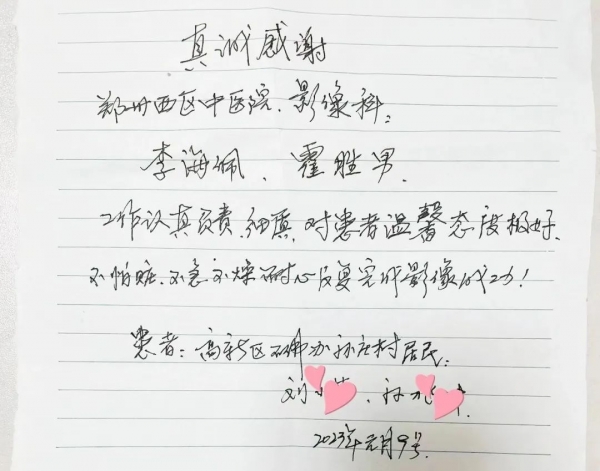 真诚感谢
郑州西区中医院.影像科:
李海佩、霍胜男.
工作认真负责,细真,对患者温馨态度极好.
不怕脏.不急不燥耐心反复完成影像成功!
患者:高新区石佛办孙庄村居民:
刘小 、孙
2023年元月9号.